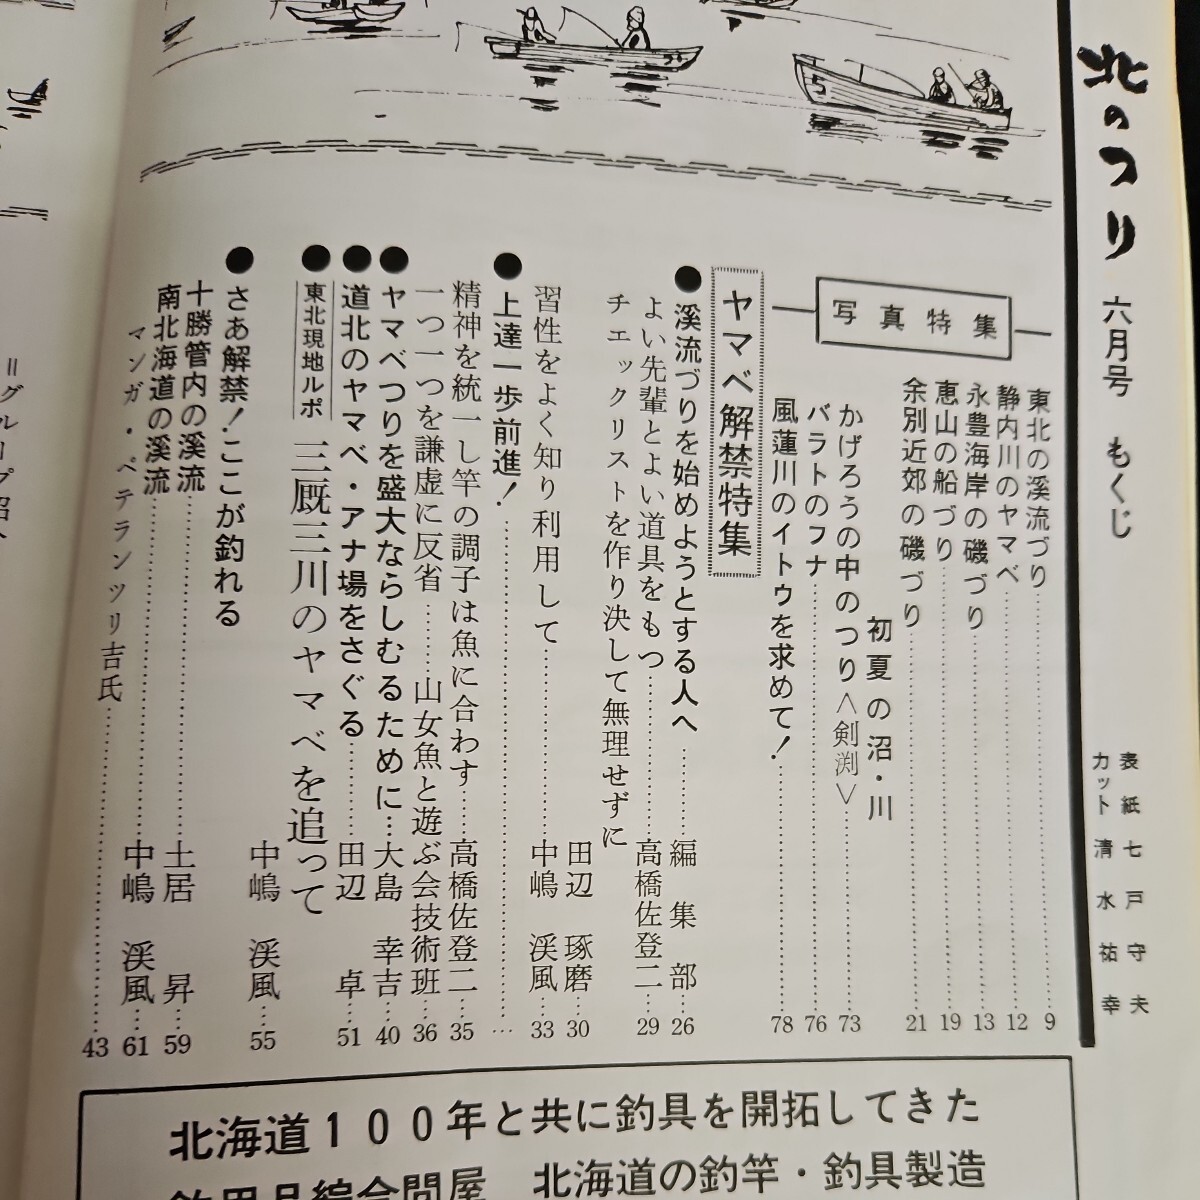 北のつり 六月号 もくじ
表紙 七戸守夫
カット 清水祐幸
写真特集
東北の渓流づり……9
静内川のヤマベ……12
永豊海岸の磯づり……13
恵山の船づり……19
余別近郊の磯づり……21
初夏の沼・川
かげろうの中のつり<剣渕>……73
バラトのフナ……76
風蓮川のイトウを求めて!……78
ヤマベ解禁特集
●渓流づりを始めようとする人へ……編集部……26
よい先輩とよい道具をもつ……高橋佐登二……29
チエックリストを作り決して無理せずに
田辺 琢磨……30
習性をよく知り利用して……中嶋 渓風……33
●上達一歩前進!……
精神を統一し竿の調子は魚に合わす……高橋佐登二……35
一つ一つを謙虚に反省……山女魚と遊ぶ会技術班……36
●ヤマベつりを盛大ならしむるために…大島 幸吉……40
●道北のヤマベ・アナ場をさぐる……田辺 卓……51
●東北現地ルポ 三厩三川のヤマベを追って
中嶋 渓風……55
●さあ解禁!ここが釣れる
十勝管内の渓流……土居 昇……59
南北海道の渓流……中嶋 渓風……61
マンガ・ベテランツリ吉氏……43
北海道100年と共に釣具を開拓してきた
釣用品総合問屋 北海道の釣竿・釣具製造
=グループ紹介